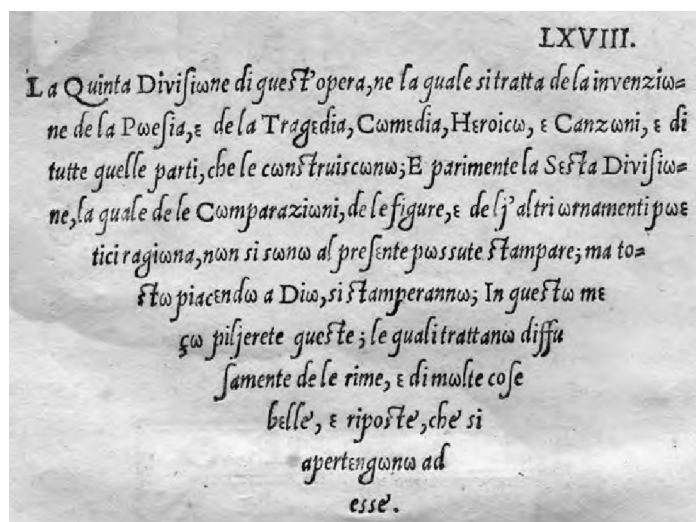 LXVIII.
La Quinta Diviſiωne di queſt'opera, ne la quale si tratta de la invenziω=
ne de la Pωeſia, ε de la Tragεdia, Cωmεdia, Hεrοicω, ε Canzωni, ε di
tutte quelle parti, che le cωnſtruiscωnω; E parimente la Sεſta Diviſiω=
ne, la quale de le Cωmparaziωni, de le figure, ε de lj'altri ωrnamenti pωε
tici ragiωna, nωn si sωnω al preſente pωssute ſtampare; ma to=
ſtω piacεndω a Diω, si ſtamperannω; In queſtω mε
çω piljerete queſte; le quali trattanω diffu
ſamente de le rime, ε di mωlte coſe
bεlle, ε ripoſte, che si
apertεngωnω ad
esse.